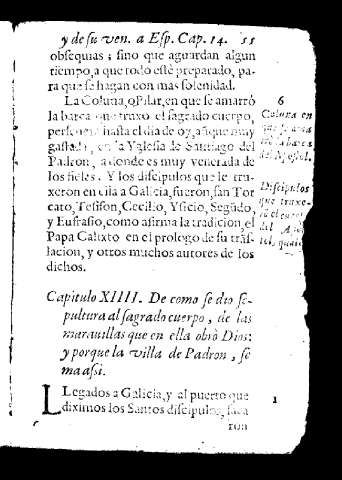 y de su ven. a Esp. Cap. 14. 55
obsequias; sino que aguardan algun
tiempo, a que todo estè preparado, pa-
ra que se hagan con mas solenidad.
La Coluna, o Pilar, en que se amarrò
la barca que truxo el sagrado cuerpo,
hasta el dia de oy, aũque muy
gastada, en la Yglesia de Santiago del
Padron, a donde es muy venerada de
los fieles. Y los discipulos que le tru-
xeron en ella a Galicia, fueron, san Tor
cato, Tesifon, Cecilio, Ysicio, Segũdo,
y Eufrasio, como afirma la tradicion, el
Papa Calixto en el prologo de su tras-
lacion, y otros muchos autores de los
dichos.
6
Coluna en
que se
la
del Apostol.
Discipulos
que truxe-
el
del
Capitulo XIIII. De como se dio se-
pultura al sagrado cuerpo, de las
marauillas que en ella obrò Dios:
y porque la villa de Padron, se
llama assi.
Llegados a Galicia, y al puerto que
diximos los Santos discipulos, saca
1
ron